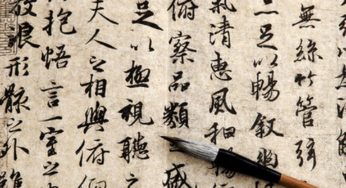 無絲竹管弦
足以暢叙幽
氣清惠風和暢
俯察品類盛
足以極視聽之
夫人之相與俯仰
抱悟言一室之内
放浪形骸之外雖